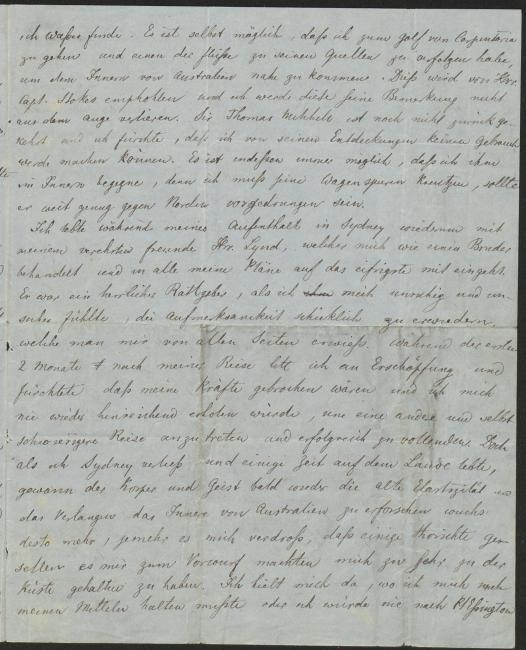 ich Wasser finde. Es ist selbst möglich, daß ich zum Golf von Carpentaria
zu gehen und einen der Flüße zu seinen Quellen zu verfolgen habe,
um dem Innern von Australien nahe zu kommen. Dieß wird von Hrn
Capt. Stokes empfohlen und ich werde diese seine Bemerkung nicht
aus dem Auge verlieren. Sir Thomas Mitchell ist noch nicht zurück ge-
kehrt und ich fürchte, daß ich von seinen Entdeckungen keinen Gebrauch
werde machen können. Es ist indessen immer möglich, daß ich ihm
im Innern begegne, denn ich muß seine Wagenspuren kreutzen, sollte
er weit genug gegen Norden vorgedrungen sein.
Ich lebte während meines Aufenthalt in Sydney wiederum mit
meinem verehrten Freunde Hrn. Lynd, welcher mich wie einen Bruder
behandelt und in alle meine Pläne auf das eifrigste mit eingeht.
Er war ein herrlicher Rathgeber, als ich mich unruhig und un-
sicher fühlte, die Aufmerksamkeit schicklich zu erwiedern,
welche man mir von allen Seiten erwieß. Während der ersten
2 Monate nach meiner Reise litt ich an Erschöpfung und
fürchtete daß meine Kräfte gebrochen wären und ich mich
nie wieder hinreichend erholen würde, um eine andere und selbst
schwierigere Reise anzutreten und erfolgreich zu vollenden. Doch
als ich Sydney verließ und einige Zeit auf dem Lande lebte,
gewann der Körper und Geist bald wieder die alte Elastizität und
das Verlangen das Innere von Australien zu erforschen wuchs
desto mehr, jemehr es mich verdroß, daß einige thörichte Ge-
sellen es mir zum Vorwurf machten mich zu sehr zu der
Küste gehalten zu haben. Ich hielt mich da, wo ich mich nach
meinen Mitteln halten mußte oder ich würde nie nach Pt Essington